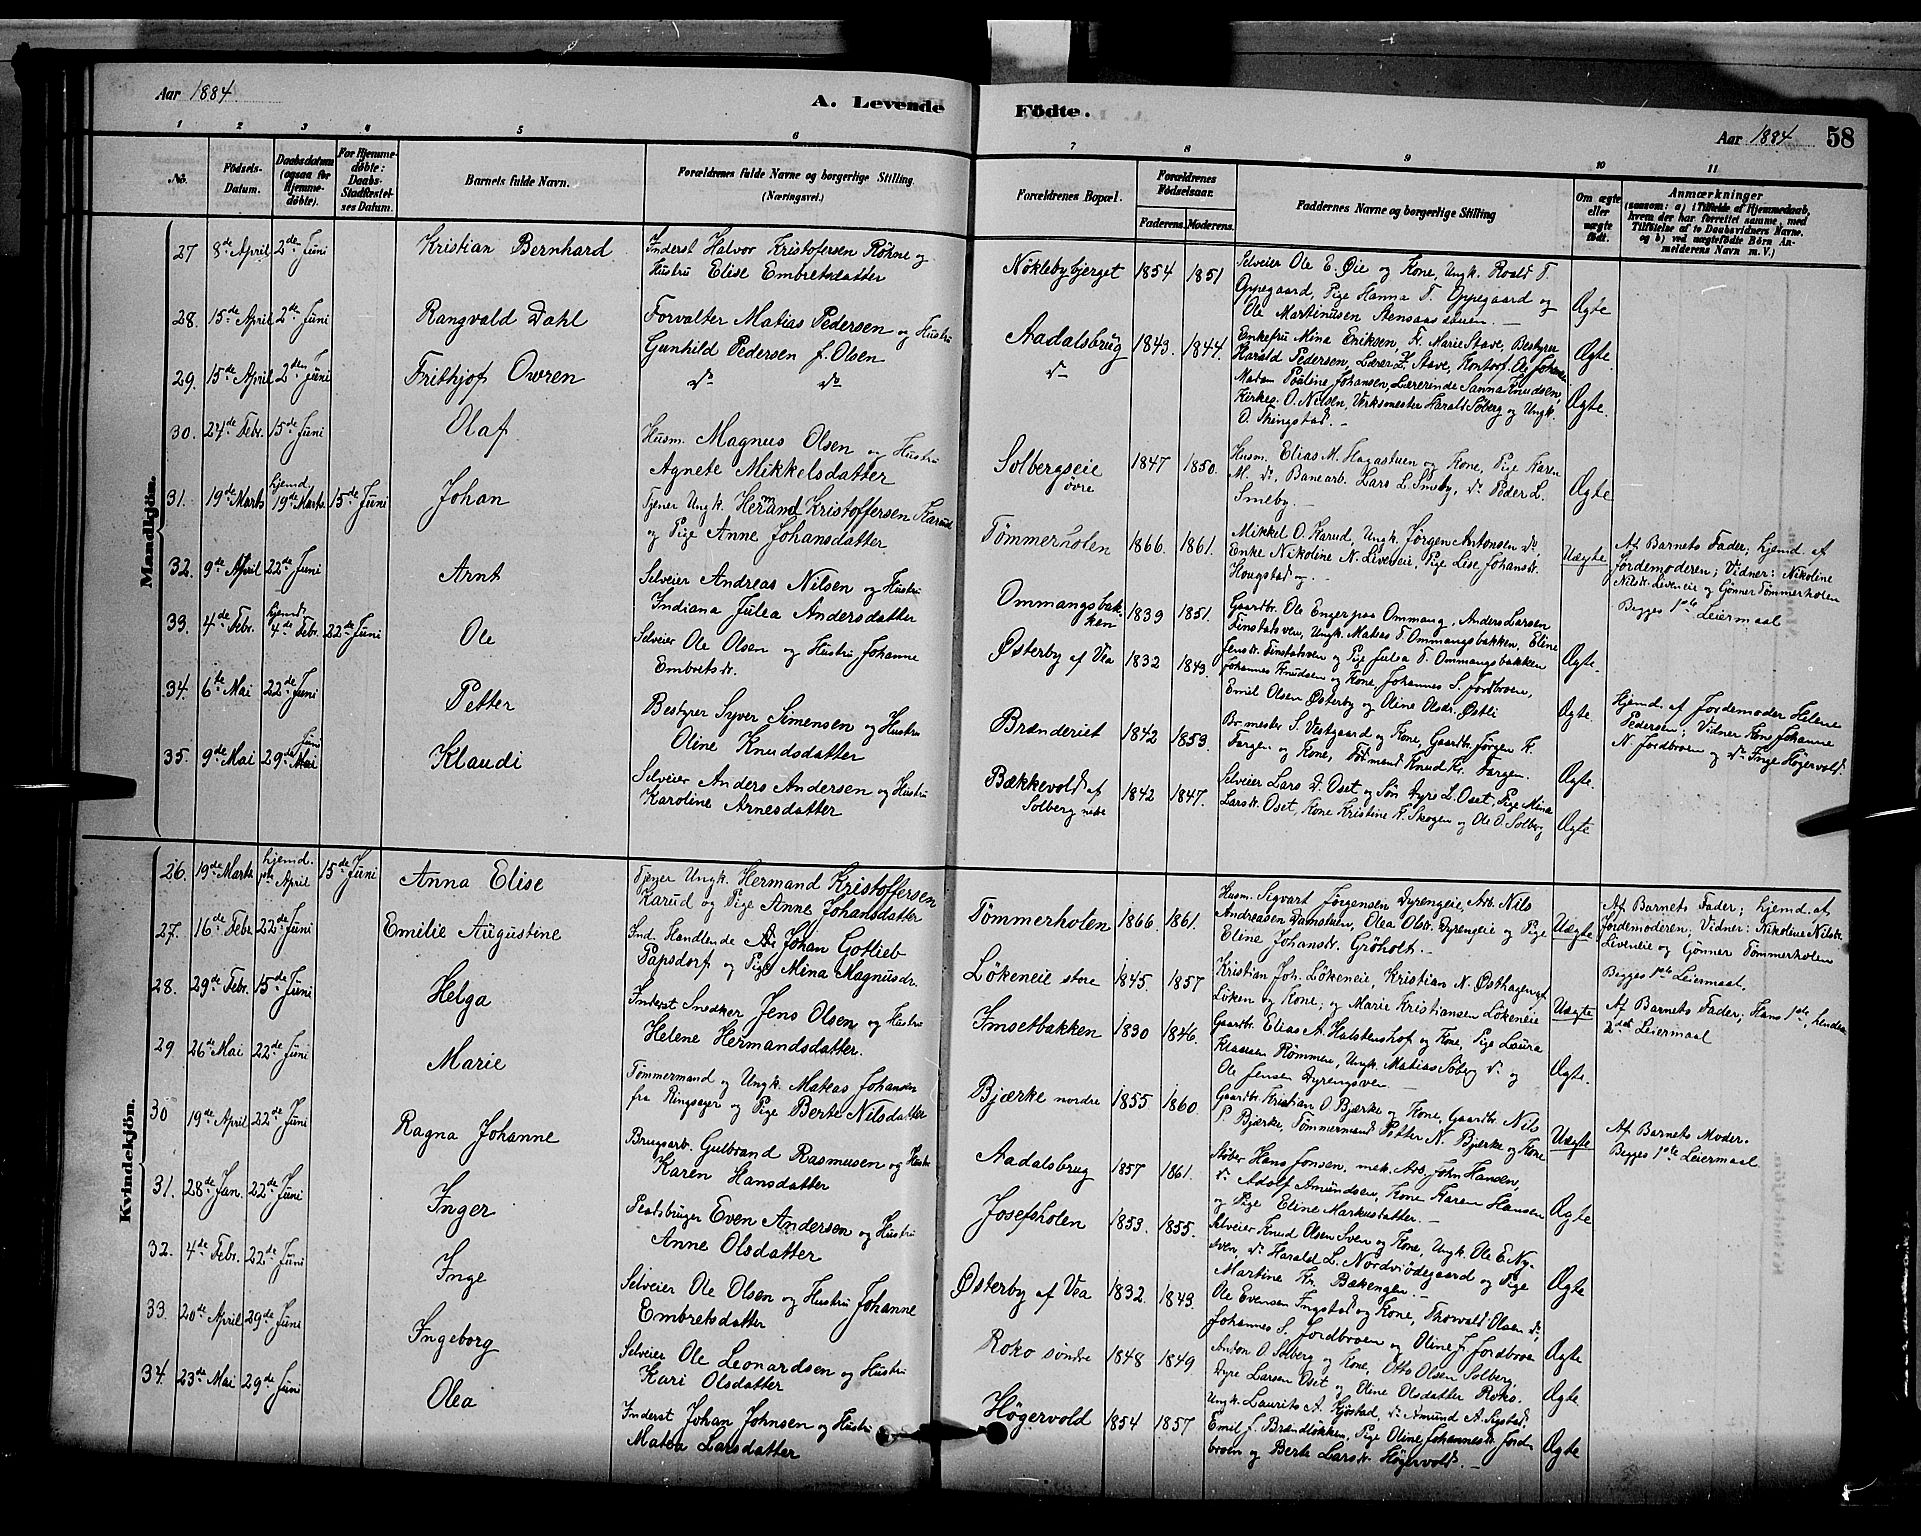 Aar 1884.
A. Levende
Födte.
Aar 1884
58
1 2 3 4 5 6 7 8 9 10 11
No.
Födsels-
Datum.
Daabsdatum
(ogsaa for
Hjemme-
døbte).
For Hjemme-
døbte:
Daabs-
Stadfæstel-
ses Datum.
Barnets fulde Navn.
Forældrenes fulde Navne og borgerlige Stilling
(Næringsvei.)
Forældrenes Bopæl.
Forældrenes
Födselsaar.
Faderens. Moderens.
Faddernes Navne og borgerlige Stilling
Om ægte
eller
uægte
født.
Anmærkninger
(saasom: a) i Tilfælde af Hjemmedaab,
hvem der har forrettet samme, med
Tilföielse af to Daabsvidners Navne.
og b) ved uægtefödte Börn An-
melderens Navn m. V.)
Mandkjön.
27 8de April 2den Juni Kristian Bernhard
Inderst Halvor Kristofersen Röhne og
Hustru Elise Embretsdatter
Nöklebybjerget 1854 1851
Selveier Ole E. Øie og Kone, Ungk. Roald T.
Oppegaard, Pige Hanna T. Oppegaard og
Ole Martinusen Stensaasstuen.
Ægte
28. 15de April 2den Juni Rangvald Dahl
Forvalter Matias Pedersen og Hustru
Gunhild Pedersen f. Olsen
Aadalsbrug 1843. 1844.
Enkefru Mina Eriksen, Fr. Marie Stave, Bestyrer
Harald Pedersen, Lærer Z. Stave, Kontorf. Ole Johansen
Ægte.
29. 15de April 2den Juni Frithjof Owren
do do
do
Madam Pauline Johansen, Lærerinde Sanna Knudsen,
Kirkes. O. Nilsen, Verksmester Harald Söberg og Ungk.
O. Thingstad.
Ægte.
30. 24de Febr. 15de Juni Olaf
Husm. Magnus Olsen og Hustru
Agnete Mikkelsdatter
Solbergseie
øvre
1847 1850.
Husm. Elias M. Hagastuen og Kone, Pige Karen
M. do, Banearb. Lars L. Smeby, do Peder L.
Smeby.
Ægte
31. 19de Marts hjemd. 19de Marts. 15de Juni Johan
Tjener Ungk. Hermand Kristoffersen Karud
og Pige Anne Johansdatter
Tömmerholen 1866. 1861.
Mikkel O. Karud, Ungk. Jørgen Antonsen do,
Enke Nikoline N. Liveneie, Pige Lise Johansdr.
Hougstad og.
Uægte
Af Barnets Fader; hjemd. af
Jordemoderen; Vidner: Nikoline
Nilsdr. Liveneie og Gönner Tömmerholen
Begges 1ste Leiermaal
32. 9de April 22de Juni Arnt
Selveier Andreas Nilsen og Hustru
Indiana Julea Andersdatter
Ommangsbak
ken
1839 1851.
Gaardbr. Ole Engerpaa Ommang, Anders Larsen
Finstadsven, Ungk. Matias T. Ommangsbakken, Eline
Jensdr. Finstadsven og Pige Julea T. Ommangsbakken
Ægte.
33. 4de Febr. hjemd. 4de Febr. 22de Juni Ole
Selveier Ole Olsen og Hustru Johanne
Embretsdr.
Østerby af Vea 1832 1843.
Johannes Knudsen og Kone, Johannes S. Jordbroen,
Emil Olsen Østerby og Oline Olsdr. Østli
Ægte.
Hjemd. af Jordemoder Helene
Pedersen; Vidner Kone Johanne
N. Jordbroen og do Inge Högervold.
34. 6te Mai 22de Juni Petter
Bestyrer Syver Simensen og Hustru
Oline Knudsdatter
Brænderiet 1842 1853.
Br.mester S. Vestgaard og Kone, Gaardbr. Jörgen K.
Fargen og Kone, Formand Knud Kr. Fargen.
Ægte.
35. 9de Mai 29de Juni Mai Klaudi
Selveier Anders Andersen og Hustru
Karoline Arnesdatter
Bækkevold af
Solberg nedre
1842 1847.
Selveier Lars D. Oset og Søn Dyre L. Oset, Pige Mina
Larsdr. Oset, Kone Kristine K. Skogen og Ole O. Solberg
Ægte
Kvindekjön.
26. 19de Marts hjemd. April 15de Juni Anna Elise
Tjener Ungk. Hermand Kristoffersen
Karud og Pige Anne Johansdatter
Tömmerholen 1866. 1861.
Husm. Sigvart Jörgensen Dyrengeie, Arb. Nils
Andreasen Damstuen, Olea Olsdr. Dyrengeie og Pige
Eline Johansdr. Gröholt.
Uægte
Af Barnets Fader; hjemd. af
Jordemoderen; Vidner: Nikoline Nilsdr.
Liveneie og Gönner Tömmerholen
Begges 1ste Leiermaal.
27. 16de Febr. 22de Juni Emilie Augustine
Ind. Handlende Johan Gotlieb
Papsdorf og Pige Mina Magnusdr.
Lökeneie store 1845. 1857
Kristian Joh. Lökeneie, Kristian N. Østhagen af
Löken og Kone; og Marie Kristiansen Lökeneie
Uægte
Af Barnets Fader; Hans 1ste, hendes
2det Leiermaal
28. 29de Febr. 15de Juni Helga
Inderst Snedker Jens Olsen og Hustru
Helene Hermandsdatter.
Imsetbakken 1830 1846.
Gaardbr. Elias A. Halstenshof og Kone, Pige Laura
Klausen Römmen, Ungk. Matias Söberg do og
Ole Jensen Dyrengsven
Ægte.
29 26de Mai 22de Juni Marie
Tömmermand og Ungk. Mateas Johansen
fra Ringsager og Pige Berte Nilsdatter
Bjærke nordre 1855 1860.
Gaardbr. Kristian O. Bjærke og Kone, Gaardbr. Nils
P. Bjærke, Tömmermand Petter N. Bjerke og Kone
Uægte
Af Barnets Moder.
Begges 1ste Leiermaal
30 19de April 22de Juni Ragna Johanne
Brugsarb. Gulbrand Rasmusen og Hustru
Karen Hansdatter
Aadalsbrug 1857 1861.
Støber Hans Jonsen, mek. Arb. John Hansen,
do Adolf Amundsen, Kone Karen Hansen
og Pige Eline Markusdatter.
Ægte
31. 28de Jan. 22de Juni Inger
Pladsbruger Even Andersen og Hustru
Anne Olsdatter
Josefsholen 1853. 1855.
Selveier Knud Olsen Sven og Kone, Ungk. Ole E. Ny-
sven, do Harald L. Nordviödegaard og Pige
Martine Kr. Bækengen.
Ægte
32. 4de Febr. 22de Juni Inge
Selveier Ole Olsen og Hustru Johanne
Embretsdatter
Østerby af Vea 1832. 1843.
Ole Evensen Ingstad og Kone, Thorvald Olsen do,
Johannes S. Jordbroen og Oline J. Jordbroen
Ægte
33. 20de April 29de Juni Ingeborg
Selveier Ole Leonardsen og Hustru
Kari Olsdatter
Roko söndre 1848 1849.
Anton O. Solberg og Kone, Otto Olsen Solberg,
Dyre Larsen Oset og Oline Olsdatter Roko.
Ægte
34. 23de Mai 29de Juni Olea
Inderst Johan Johnsen og Hustru
Matea Larsdatter
Högervold 1854 1857
Ungk. Laurits A. Kjöstad, do Amund A. Sigstad,
Emil J. Brændlökken, Pige Oline Johannesdr. Jord
broen og Berte Larsdr. Högervold.
Ægte